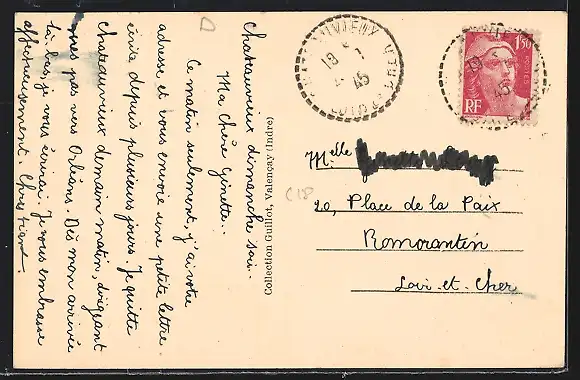 Chateauvieux dimanche soir.
Ma chère Ginette.
Ce matin seulement, j'ai votre
adresse et vous envoie une petite lettre.
civile depuis plusieurs jours. Je quitte
Chateauvieux demain matin, dirigeant
mes pas vers Orléans. Dès mon arrivée
là-bas, je vous écrirai. Je vous embrasse
affectueusement. Christiane
Collection Guillot, Valençay (Indre)
C18
CHATEAUVIEUX
18
45
1F50
POSTES
RF
19
45
Melle
20, Place de la Paix
Romorantin
Loir-et-Cher